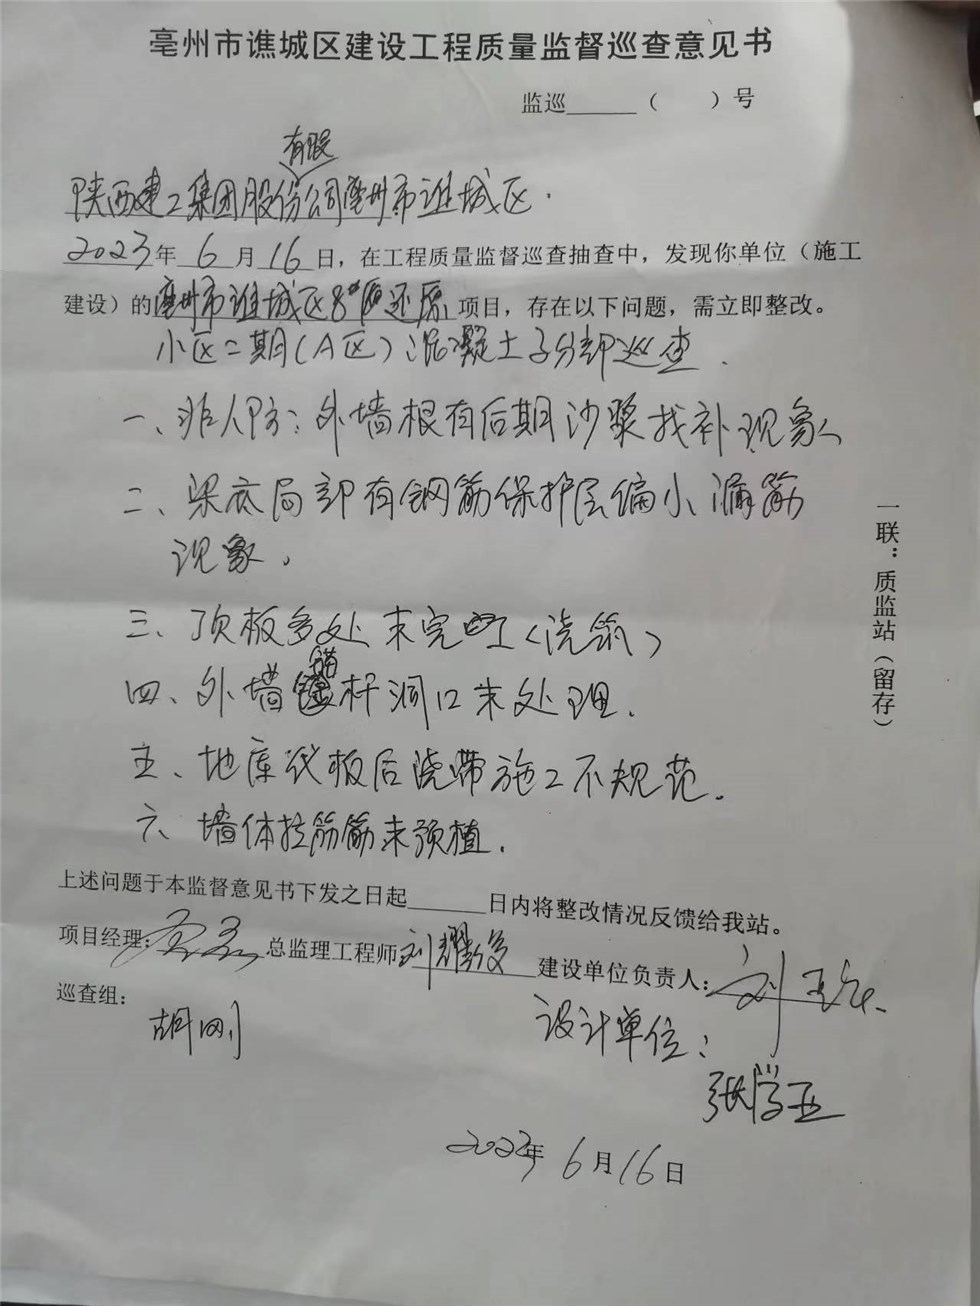 亳州市谯城区建设工程质量监督巡查意见书
监巡______（　　）号
有限
陕西建工集团股份公司亳州市谯城区.
2023年 6 月 16 日，在工程质量监督巡查抽查中，发现你单位（施工
建设）的亳州市谯城区8#原还原项目，存在以下问题，需立即整改。
小区二期（A区）混凝土子分部巡查.
一、非人防：外墙根有后期沙浆找补现象
二、梁底局部有钢筋保护层偏小漏筋
现象。
三、顶板多处未完工（浇筑）
四、外墙锚杆洞口未处理.
五、地库底板后浇带施工不规范.
六、墙体拉筋未预植.
上述问题于本监督意见书下发之日起______日内将整改情况反馈给我站。
项目经理： 总监理工程师 刘耀 建设单位负责人：刘
巡查组：
胡刚
设计单位：
张学亚
2023年 6月16日
一联：质监站（留存）